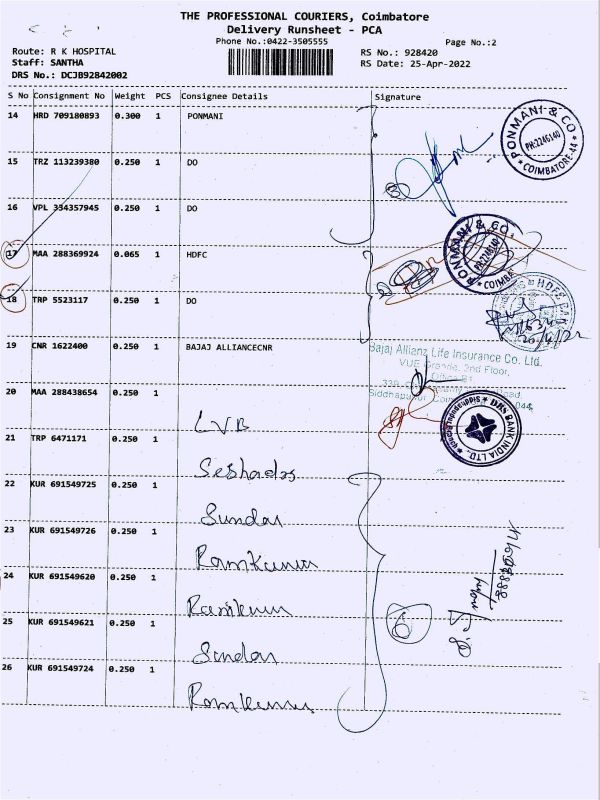 THE PROFESSIONAL COURIERS, Coimbatore
Delivery Runsheet - PCA
Phone No.:0422-3505555
Page No.:2
Route: R K HOSPITAL
RS No.: 928420
Staff: SANTHA
RS Date: 25-Apr-2022
DRS No.: DCJB92842002
S No Consignment No Weight PCS Consignee Details Signature
14 HRD 709180893 0.300 1 PONMANI
PONMANI & CO
PH:2246140
COIMBATORE-44
15 TRZ 113239380 0.250 1 DO
16 VPL 334357945 0.250 1 DO
PONMANI & CO.
PH:2246140
COIMBA
17 MAA 288369924 0.065 1 HDFC
18 TRP 5523117 0.250 1 DO
HDFC BANK
19 CNR 1622400 0.250 1 BAJAJ ALLIANCECNR
Bajaj Allianz Life Insurance Co. Ltd.
VUE Grande, 2nd Floor,
20 MAA 288438654 0.250 1 LVB
DBS BANK INDIA LTD.
21 TRP 6471171 0.250 1 Seshadas
22 KUR 691549725 0.250 1 Sundar
23 KUR 691549726 0.250 1 RamKumar
24 KUR 691549620 0.250 1 Ramkumar
25 KUR 691549621 0.250 1 Sundar
26 KUR 691549724 0.250 1 Ramkumar